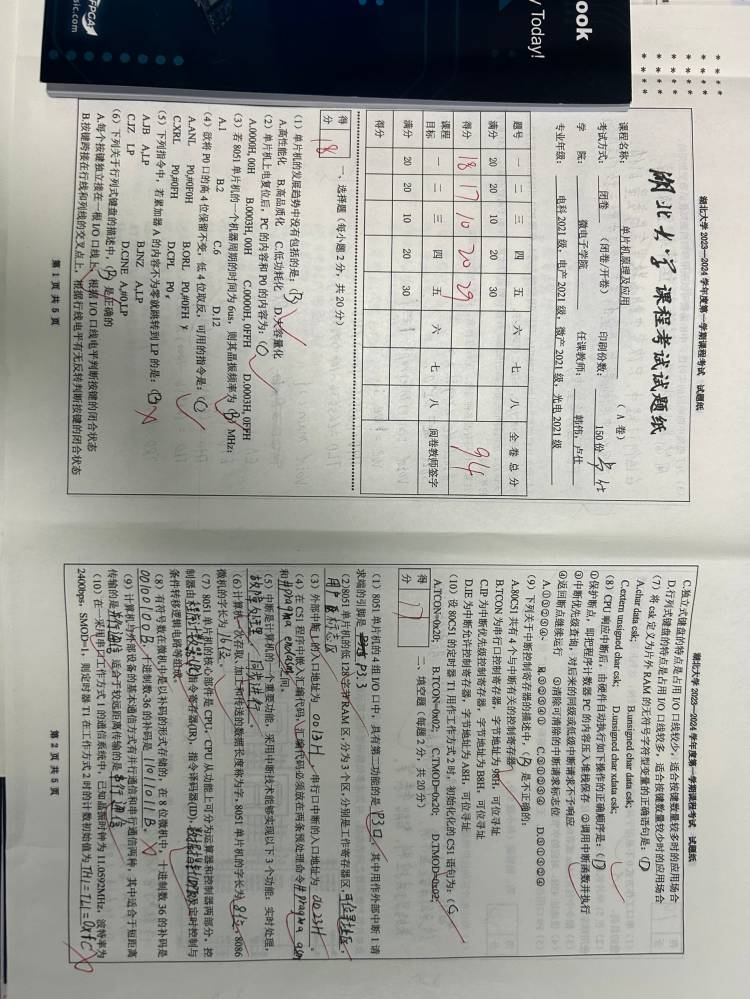 ook
y Today!
FPGA
sic.com
湖北大学 2023—2024 学年度第一学期课程考试 试题纸
湖北大学 课程考试试题纸
课程名称: 单片机原理及应用 ( A 卷)
考试方式: 闭卷 (闭卷/开卷) 印刷份数: 150 份
学 院: 微电子学院 任课教师: 韩伟,卢仕
专业年级: 电科 2021 级,电产 2021 级,微产 2021 级,光电 2021 级
题号 一 二 三 四 五 六 七 八 全卷总分
满分 20 20 10 20 30
得分 18 17 10 20 29 94
课程目标 一 二 三 四 五 六 七 八 阅卷教师签字
满分 20 20 10 20 30
得分
得分 18
一、选择题(每小题 2 分,共 20 分)
(1) 单片机的发展趋势中没有包括的是:(B)
A.高性能化 B.高品质化 C.低功耗化 D.大容量化
(2) 单片机上电复位后,PC 的内容和 P0 的内容为:(
A.0000H, 00H B.0003H, 00H C.0000H, 0FFH D.0003H, 0FFH
(3) 若 8051 单片机的一个机器周期的时间为 6us,则其晶振频率为(B)MHz;
A.1 B.2 C.6 D.12
(4) 欲将 P0 口的高 4 位保留不变,低 4 位取反,可用的指令是:(C)
A.ANL P0,#0F0H B.ORL P0,#0FH
C.XRL P0,#0FH D.CPL P0
(5) 下列指令中,若累加器 A 的内容不为零就跳转到 LP 的是:(B)
A.JB A,LP B.JNZ A,LP
C.JZ LP D.CJNE A,#0,LP
(6) 下列关于行列式键盘的描述中,(B)是正确的
A.每个按键独立接在一根 I/O 口线上,根据 I/O 口线电平判断按键的闭合状态
B.按键跨接在行线和列线的交叉点上,根据行线电平有无反转判断按键的闭合状态
第 1 页 共 5 页
湖北大学 2023—2024 学年度第一学期课程考试 试题纸
C.独立式键盘的特点是占用 I/O 口线较少,适合按键数量较多时的应用场合
D.行列式键盘的特点是占用 I/O 口线较多,适合按键数量较少时的应用场合
(7) 将 csk 定义为片外 RAM 的无符号字符型变量的正确语句是:(D
A.char data csk; B.unsigned char data csk;
C.extern unsigned char csk; D.unsigned char xdata csk;
(8) CPU 响应中断后,由硬件自动执行如下操作的正确顺序是:(D
①保护断点,即把程序计数器 PC 的内容压入堆栈保存 ②调用中断函数并执行
③中断优先级查询,对后来的同级或低级中断请求不予响应
④返回断点继续运行 ⑤清除可清除的中断请求标志位
(9) 下列关于中断控制寄存器的描述中,(B 是不正确的:
A.80C51 共有 4 个与中断有关的控制寄存器
B.TCON 为串行口控制寄存器,字节地址为 98H,可位寻址
C.IP 为中断优先级控制寄存器,字节地址为 B8H,可位寻址
D.IE 为中断允许控制寄存器,字节地址为 A8H,可位寻址
(10) 设 80C51 的定时器 T1 用作工作方式 2 时,初始化化的 C51 语句为:(C
A.TCON=0x20; B.TCON=0x02; C.TMOD=0x20; D.TMOD=0x02;
得分 17
二、填空题(每题 2 分,共 20 分)
(1) 8051 单片机的 4 组 I/O 口中,具有第二功能的是 P3口,其中用作外部中断 1 请
求端的引脚是 P3.3
(2)8051 单片机的低 128 字节 RAM 区,分为 3 个区,分别是工作寄存器区,可位寻址区,
用户 标志区
(3) 外部中断 1 的入口地址为 0013H,串行口中断的入口地址为 0023H。
(4) 在 C51 程序中嵌入汇编代码,汇编代码必须放在两条预处理命令#pragma asm
和#pragma endasm之间。
(5) 中断是计算机的一个重要功能,采用中断技术能够实现以下 3 个功能:实时处理,
故障处理,同步进行。
(6) 计算机一次存取、加工和传送的数据长度称为字,8051 单片机的字长为 8位,8086
微机的字长为 16位。
(7) 8051 单片机的核心部件是 CPU,CPU 从功能上可分为运算器和控制器两部分。控
制器由程序计数器(PC)指令寄存器(IR)、指令译码器(ID)、数据指针(DPTR)及定时控制与
条件转移逻辑电路等组成。
(8) 有符号数在微机中是以补码的形式存储的,在 8 位微机中,十进制数 36 的补码是
00100100B,十进制数-36 的补码是 11011011B。
(9) 计算机与外部设备的基本通信方式有并行通信和串行通信两种,其中适合于短距离
传输的是并行通信 适合于较远距离传输的是串行通信
(10) 在一采用串口工作方式 1 的通信系统中,已知晶振时钟为 11.0592MHz,波特率为
2400bps,SMOD=1,则定时器 T1 在工作方式 2 时的计数初始值为 TH1=TL1=0xfC
第 2 页 共 5 页